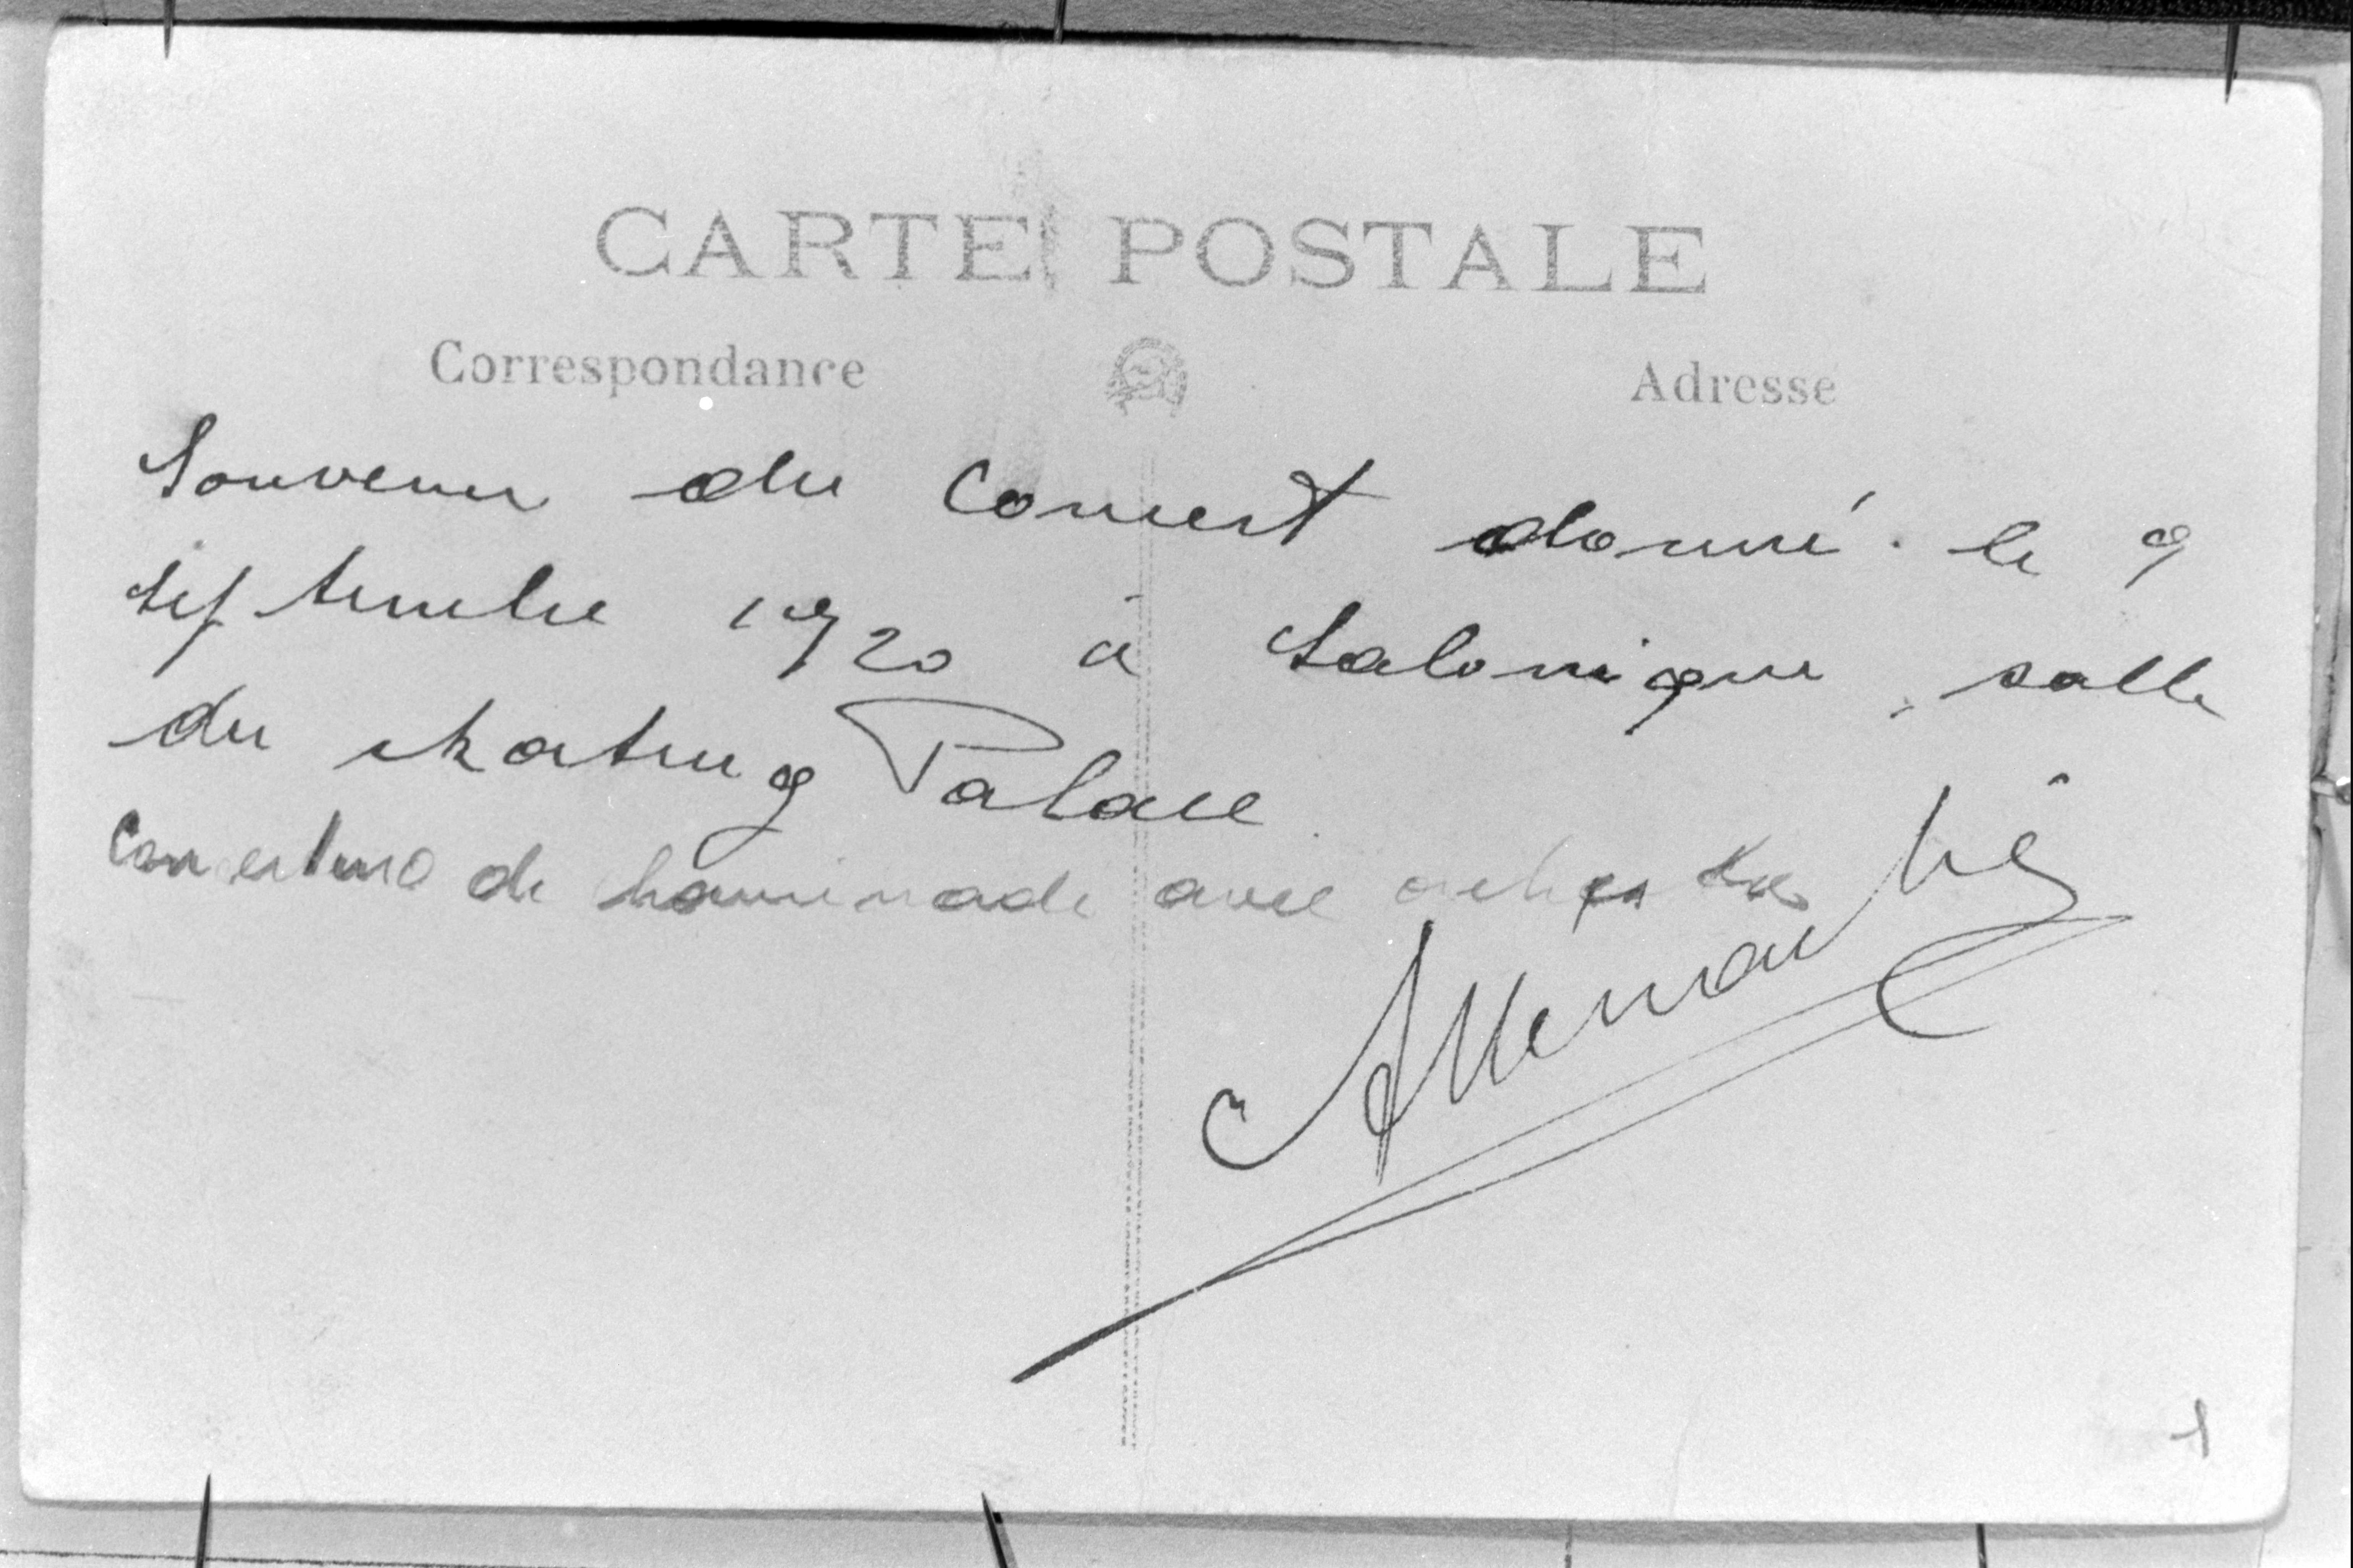 CARTE POSTALE
Correspondance
Adresse
Souvenir du Concert donné le 9
septembre 1920 à Salonique, salle
du skating Palace
Concertino de Chaminade avec orchestre